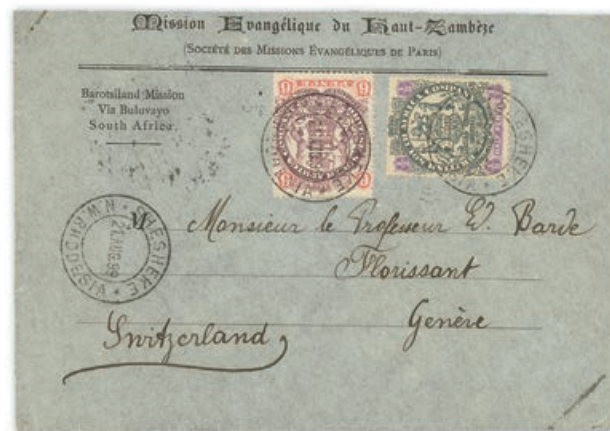 Mission Evangélique du Haut-Zambèze
(SOCIÉTÉ DES MISSIONS ÉVANGÉLIQUES DE PARIS)
Barotsiland Mission
Via Buluvayo
South Africa.
SHESHEKE
N.W. RHODESIA
21 AUG. 99
M
Monsieur le Professeur E. Barde
Florissant
Genève
Switzerland